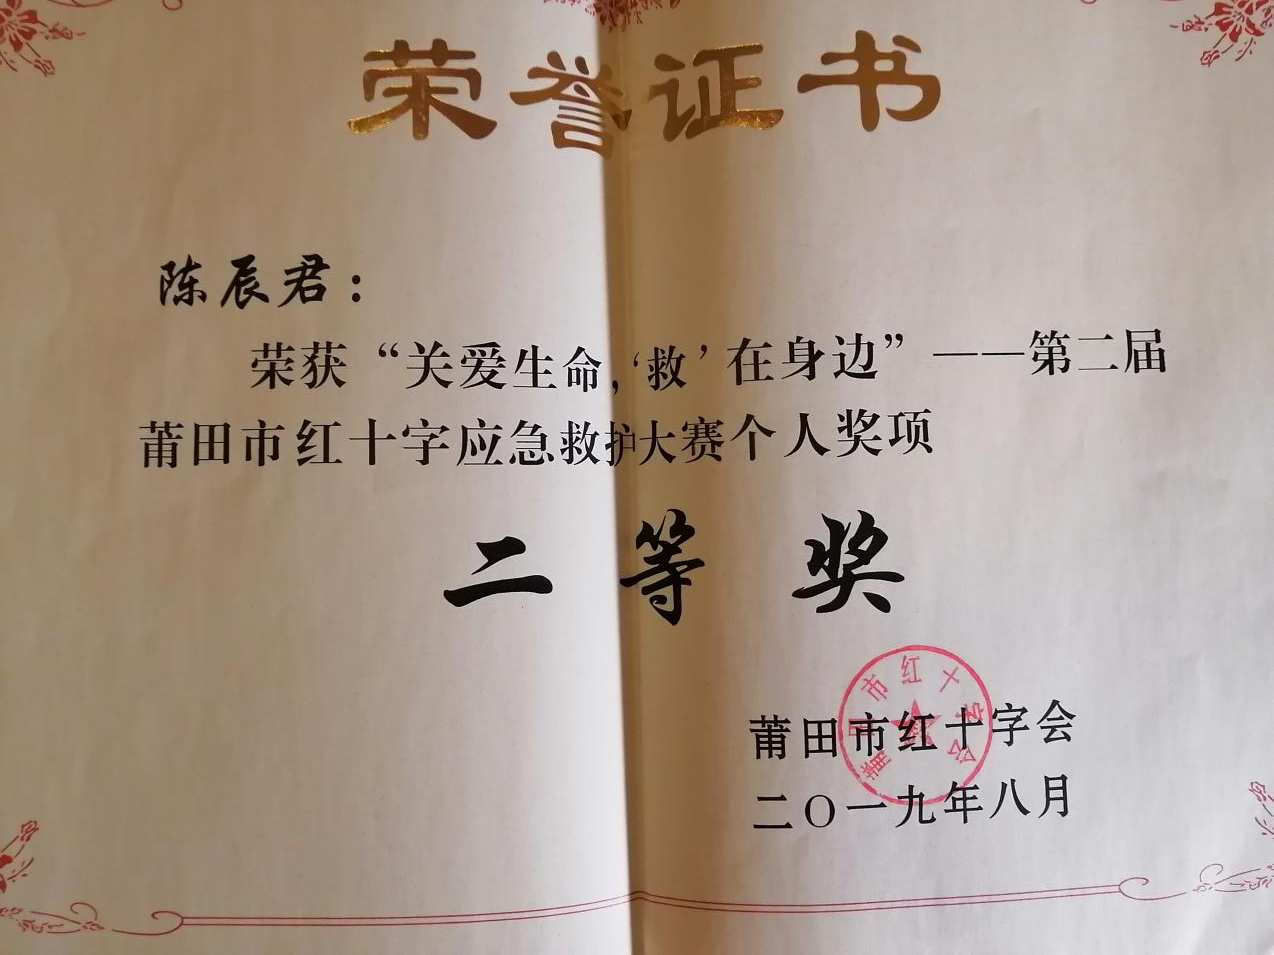 荣誉证书
陈辰君：
荣获“关爱生命，‘救’在身边”——第二届
莆田市红十字应急救护大赛个人奖项
二等奖
莆田市红十字会
莆田市红十字会
二〇一九年八月